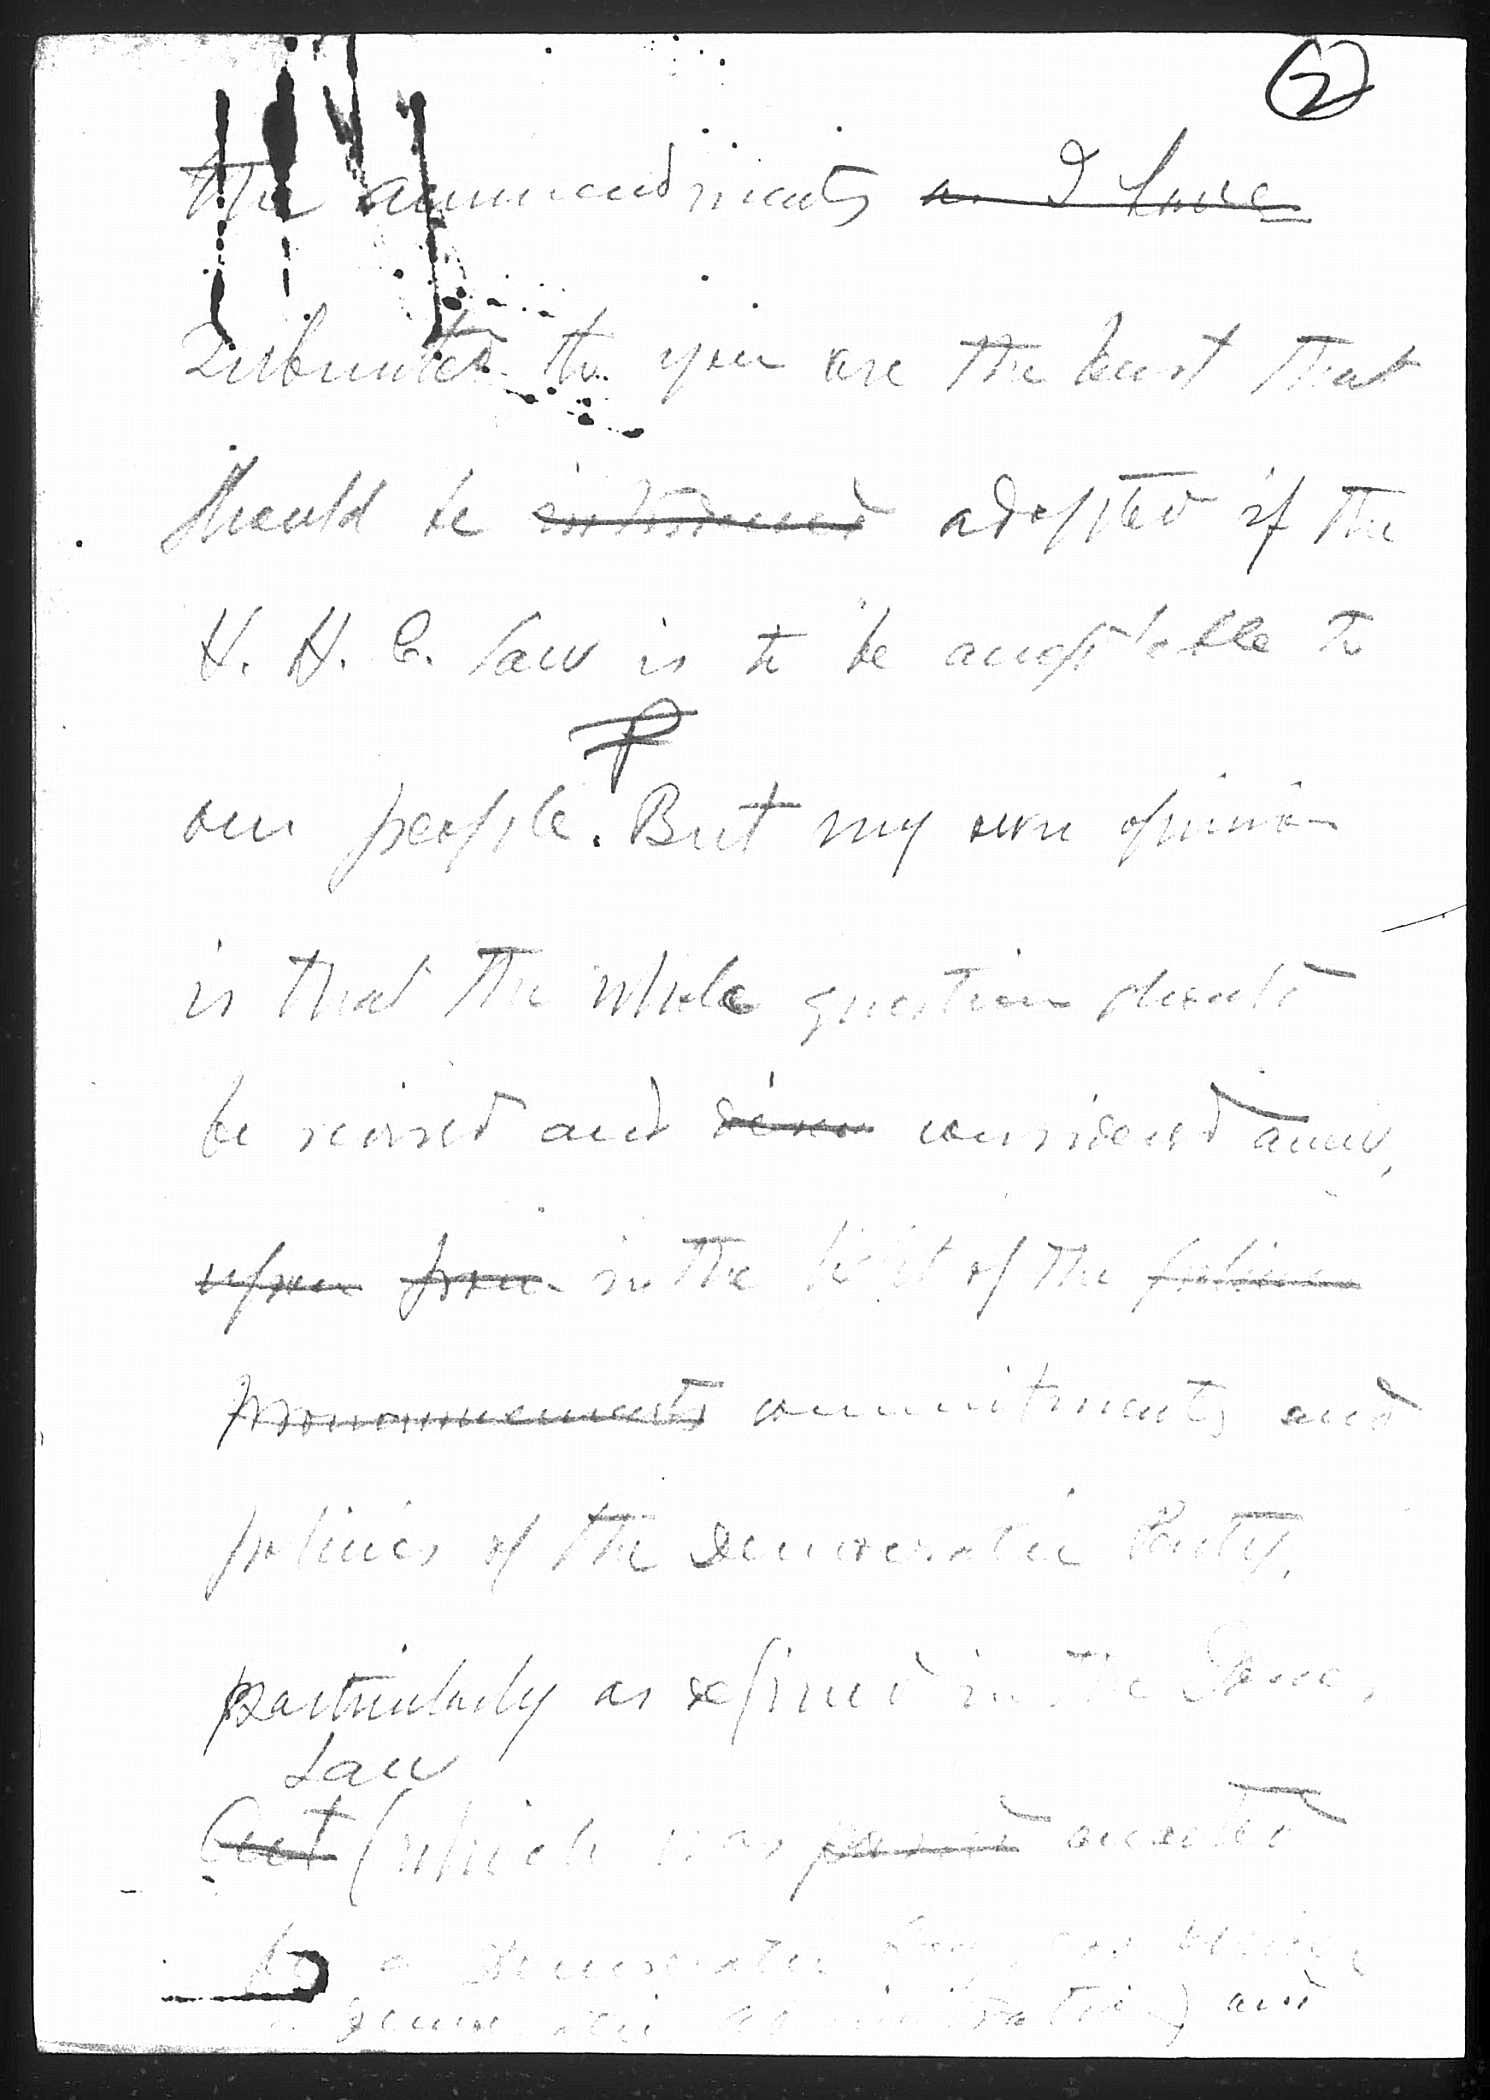 2
the ammendments as I have
submitted to you are the least that
should be introduced adopted if the
H. H. C. law is to be acceptable to
our people. But my own opinion
is that the whole question should
be revised and considered anew,
upon from in the light of the policies
pronouncements commitments and
policies of the Democratic Party,
particularly as defined in the Jones
Law
Act (which was passed enacted
by a Democratic
a Democratic administration) and